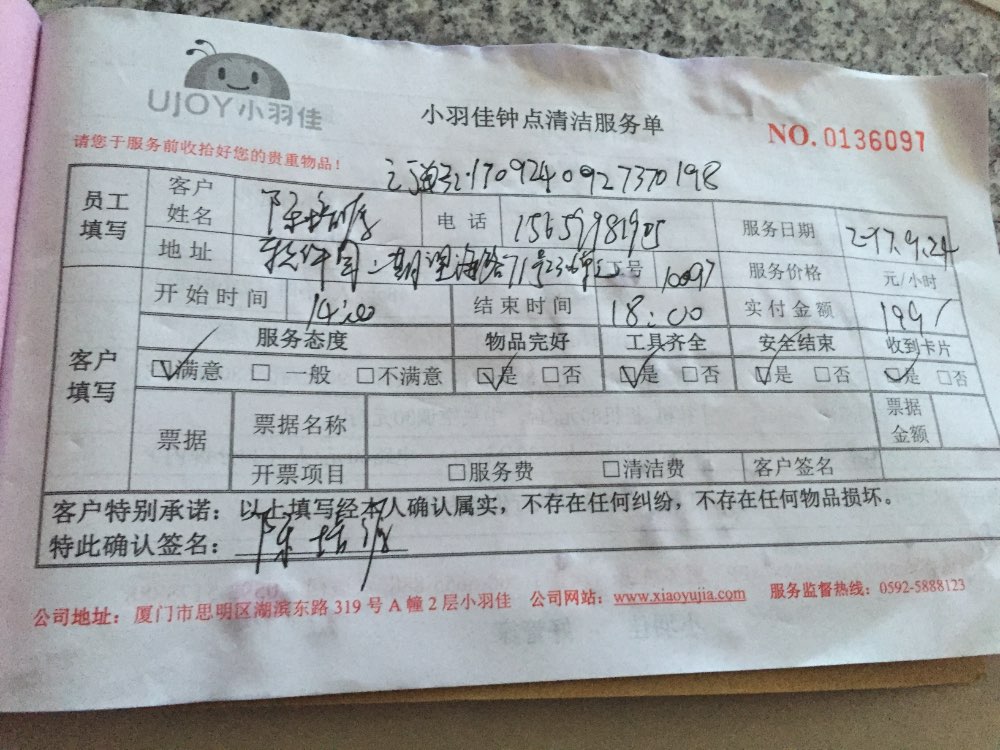 UJOY小羽佳
小羽佳钟点清洁服务单
NO. 0136097
请您于服务前收拾好您的贵重物品！
1709240927370198
员工填写 客户姓名 陈培 电话 服务日期 17.9.24
地址 71号 工号 10097 服务价格 元/小时
客户填写 开始时间 14:00 结束时间 18:00 实付金额 199/
服务态度 物品完好 工具齐全 安全结束 收到卡片
☑满意 □一般 □不满意 ☑是 □否 ☑是 □否 ☑是 □否 ☑是 □否
票据 票据名称 票据金额
开票项目 □服务费 □清洁费 客户签名
客户特别承诺：以上填写经本人确认属实，不存在任何纠纷，不存在任何物品损坏。
特此确认签名：陈培
公司地址：厦门市思明区湖滨东路 319 号 A 幢 2 层小羽佳 公司网站：www.xiaoyujia.com 服务监督热线：0592-5888123